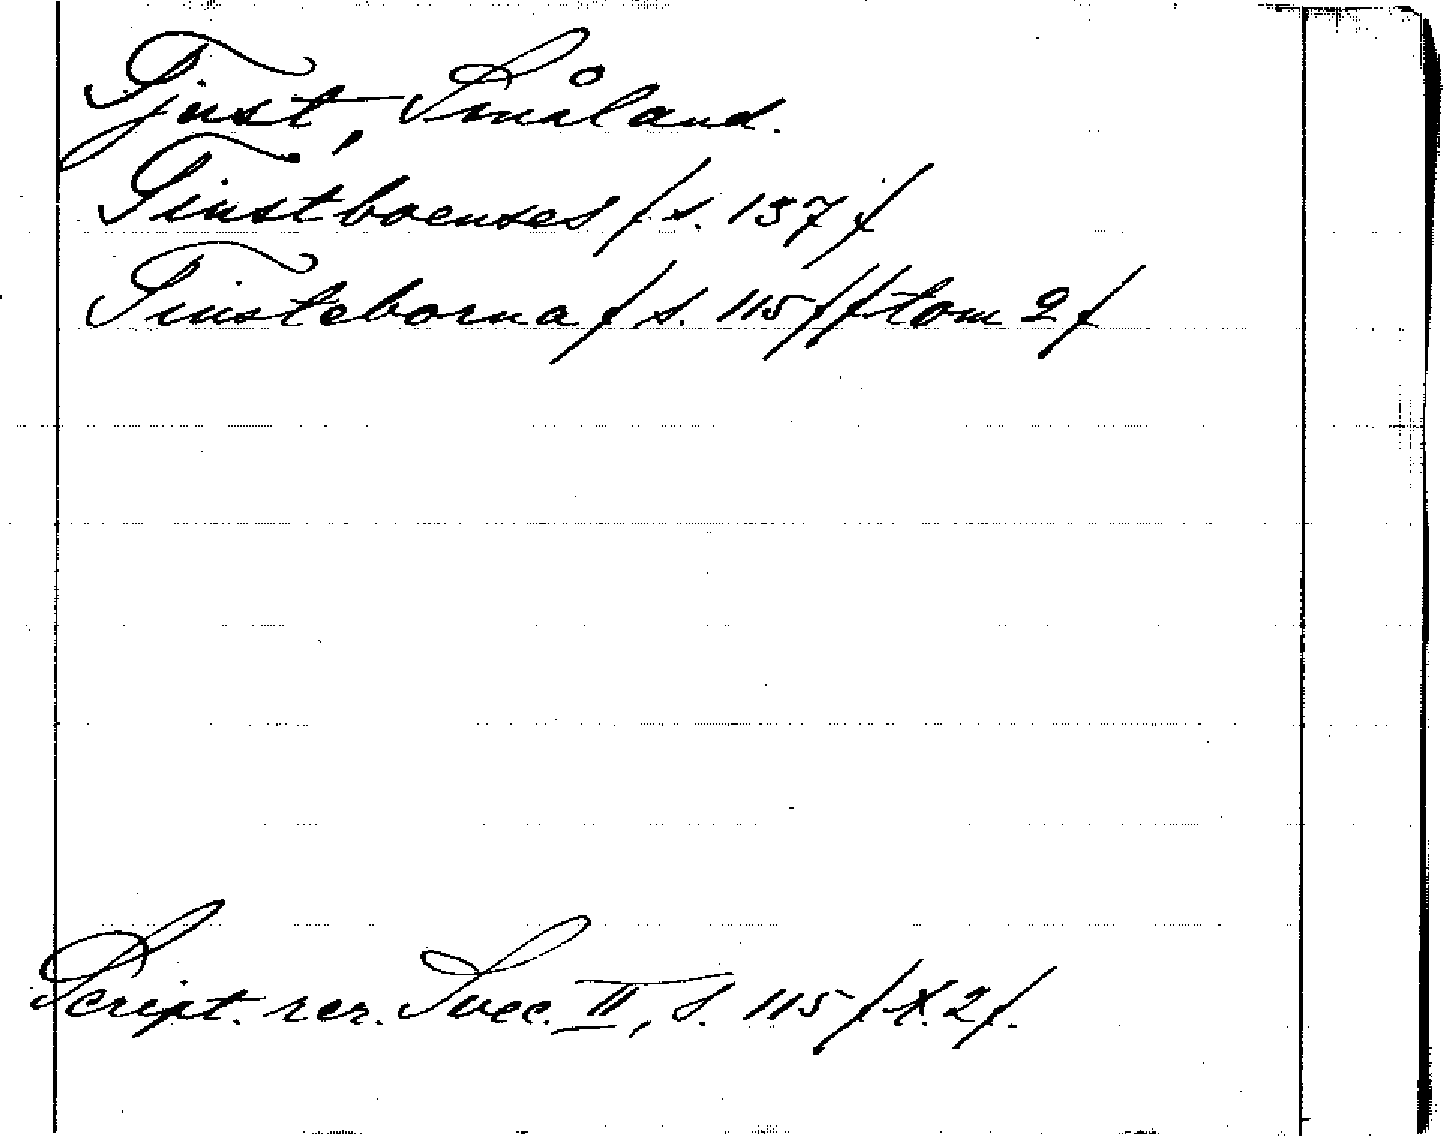 Tjust, Småland.
Tinstboenses / s. 137 /
Tinsteborna / s. 115 / / tom 2 /
Script. rer. Svec. II, s. 115 / t. 2 /.